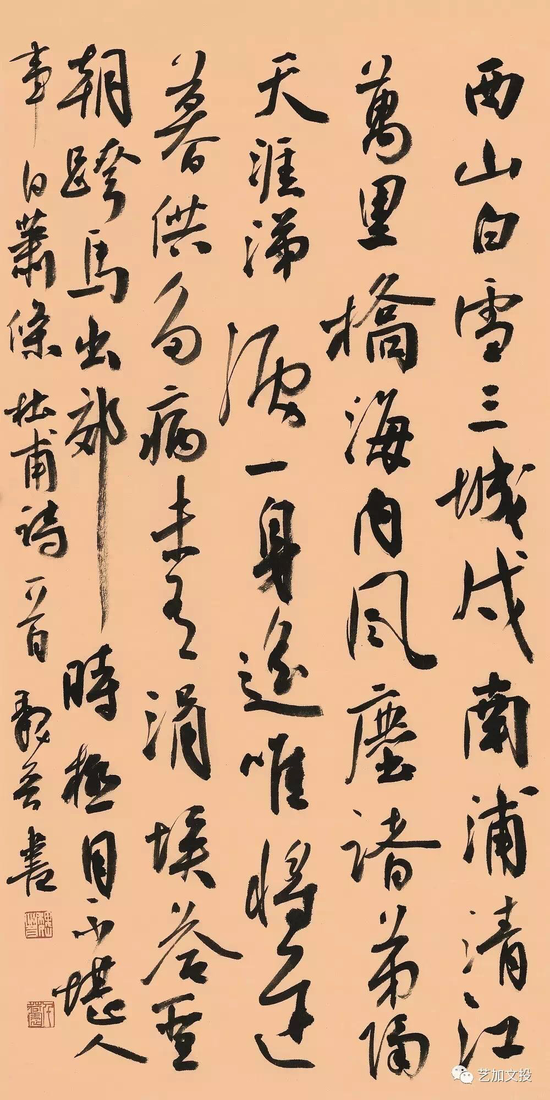 西山白雪三城戍南浦清江
萬里橋海内風塵諸弟隔
天涯涕淚一身遙唯將遲
暮供多病未有涓埃答聖
朝跨馬出郊時極目不堪人
事日蕭條杜甫詩一首書
艺加文投